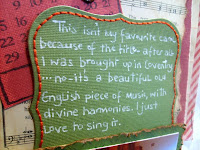 This isn't my favorite car
because of the title, after all
I was brought up in Coventry
...no-it's a beautiful old
English piece of music, with
divine harmonies. I just
love to sing it.